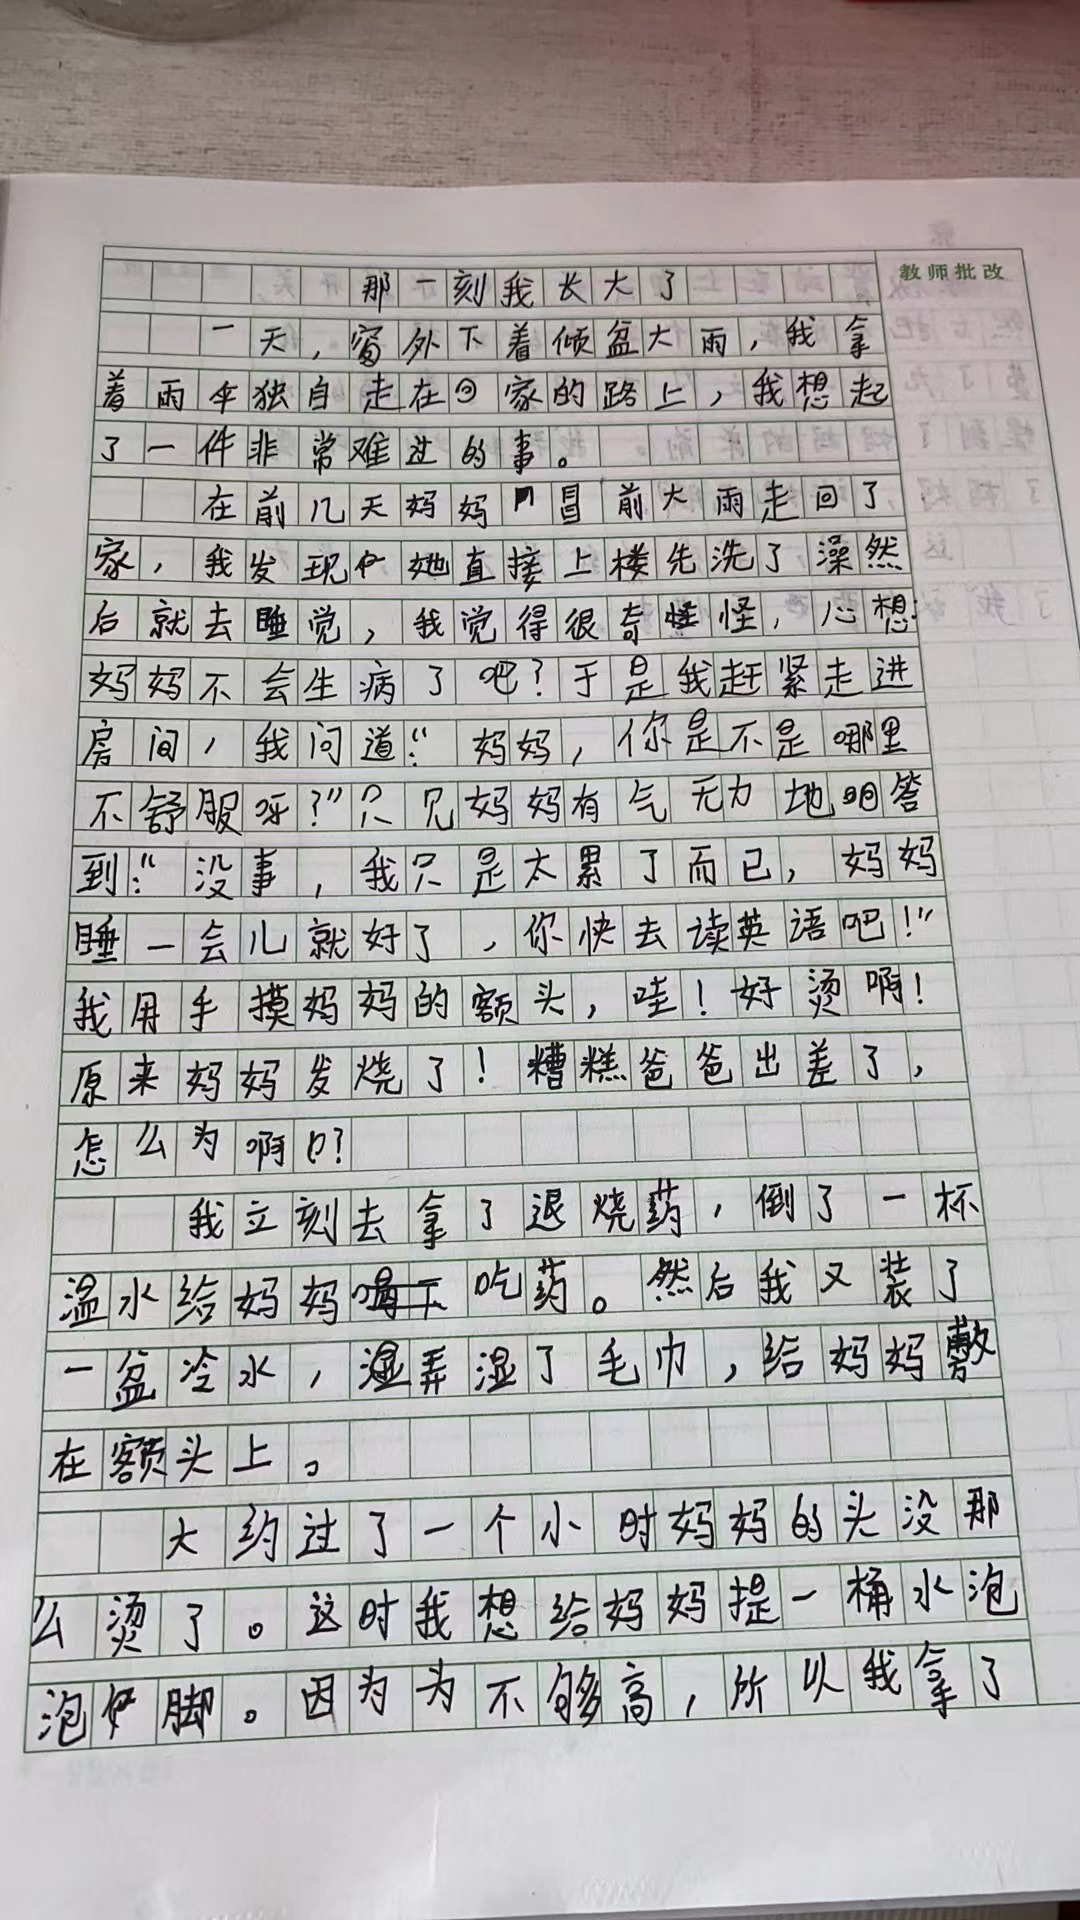 教师批改
那一刻我长大了
一天，窗外下着倾盆大雨，我拿
着雨伞独自走在回家的路上，我想起
了一件非常难过的事。
在前几天妈妈冒前大雨走回了
家，我发现她直接上楼先洗了澡然
后就去睡觉，我觉得很奇怪怪，心想:
妈妈不会生病了吧？于是我赶紧走进
房间，我问道：“妈妈，你是不是哪里
不舒服呀？”只见妈妈有气无力地回答
到：“没事，我只是太累了而已，妈妈
睡一会儿就好了，你快去读英语吧！”
我用手摸妈妈的额头，哇！好烫啊！
原来妈妈发烧了！糟糕爸爸出差了，
怎么为啊？
我立刻去拿了退烧药，倒了一杯
温水给妈妈喝下吃药。然后我又装了
一盆冷水，湿弄湿了毛巾，给妈妈敷
在额头上。
大约过了一个小时妈妈的头没那
么烫了。这时我想给妈妈提一桶水泡
泡脚。因为为不够高，所以我拿了